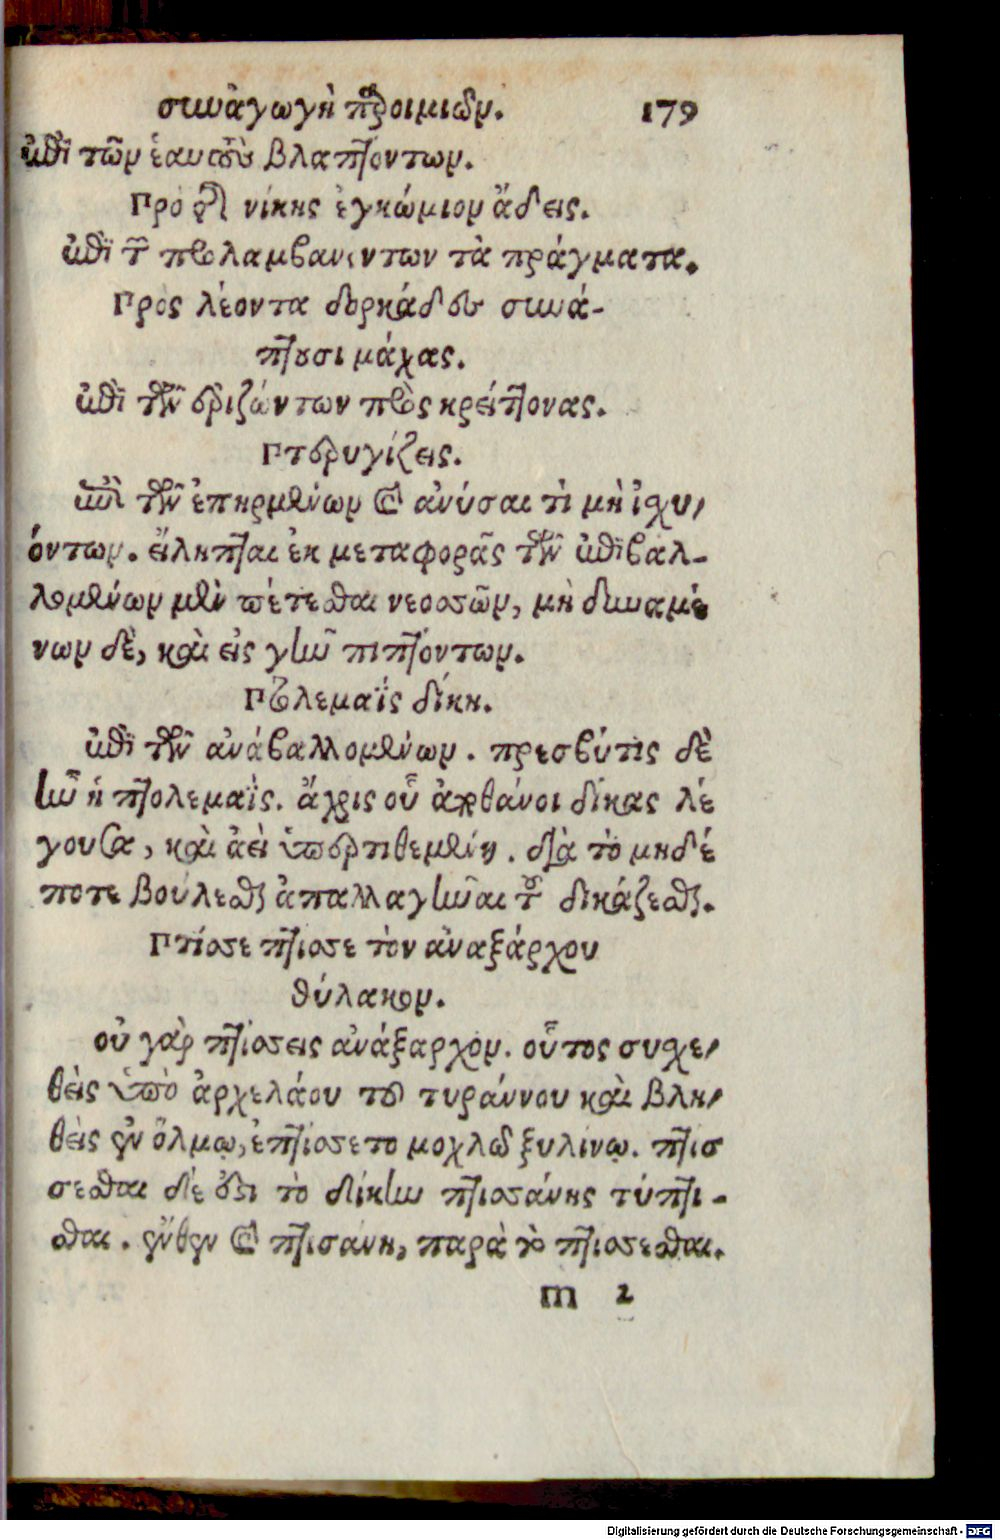 συναγωγὴ παροιμιῶν. 179
ἐπὶ τῶν ἑαυτοὺς βλαπτόντων.
Πρὸ τῆς νίκης ἐγκώμιον ᾄδεις.
ἐπὶ τῶν προλαμβανόντων τὰ πράγματα.
Πρὸς λέοντα δορκάδες συνά-
πτουσι μάχας.
ἐπὶ τῶν ἐριζόντων πρὸς κρείττονας.
Πτερυγίζεις.
ἐπὶ τῶν ἐπηρμένων καὶ ἀνύσαι τὶ μὴ ἰσχυ-
όντων. εἴληπται ἐκ μεταφορᾶς τῶν ἐπιβαλ-
λομένων μὲν πέτεσθαι νεοσσῶν, μὴ δυναμέ
νων δὲ, καὶ εἰς γῆν πιπτόντων.
Πτολεμαΐς δίκη.
ἐπὶ τῶν ἀναβαλλομένων. πρεσβύτις δὲ
ἦν ἡ πτολεμαΐς. ἄχρις οὗ ἀποθάνοι δίκας λέ
γουσα, καὶ ἀεὶ ὑπερτιθεμένη. διὰ τὸ μηδέ
ποτε βούλεσθαι ἀπαλλαγῆναι τοῦ δικάζεσθαι.
Πτίσσε πτίσσε τὸν ἀναξάρχου
θύλακον.
οὐ γὰρ πτίσσεις ἀνάξαρχον. οὗτος συχε-
θεὶς ὑπὸ ἀρχελάου τοῦ τυράννου καὶ βλη-
θεὶς ἐν ὅλμῳ, ἐπτίσσετο μοχλῷ ξυλίνῳ. πτίσ
σεσθαι δέ ἐστι τὸ δίκην πτισσάνης τύπτε-
σθαι. ἔνθεν καὶ πτισάνη, παρὰ τὸ πτίσσεσθαι.
m 2
Digitalisierung gefördert durch die Deutsche Forschungsgemeinschaft - DFG